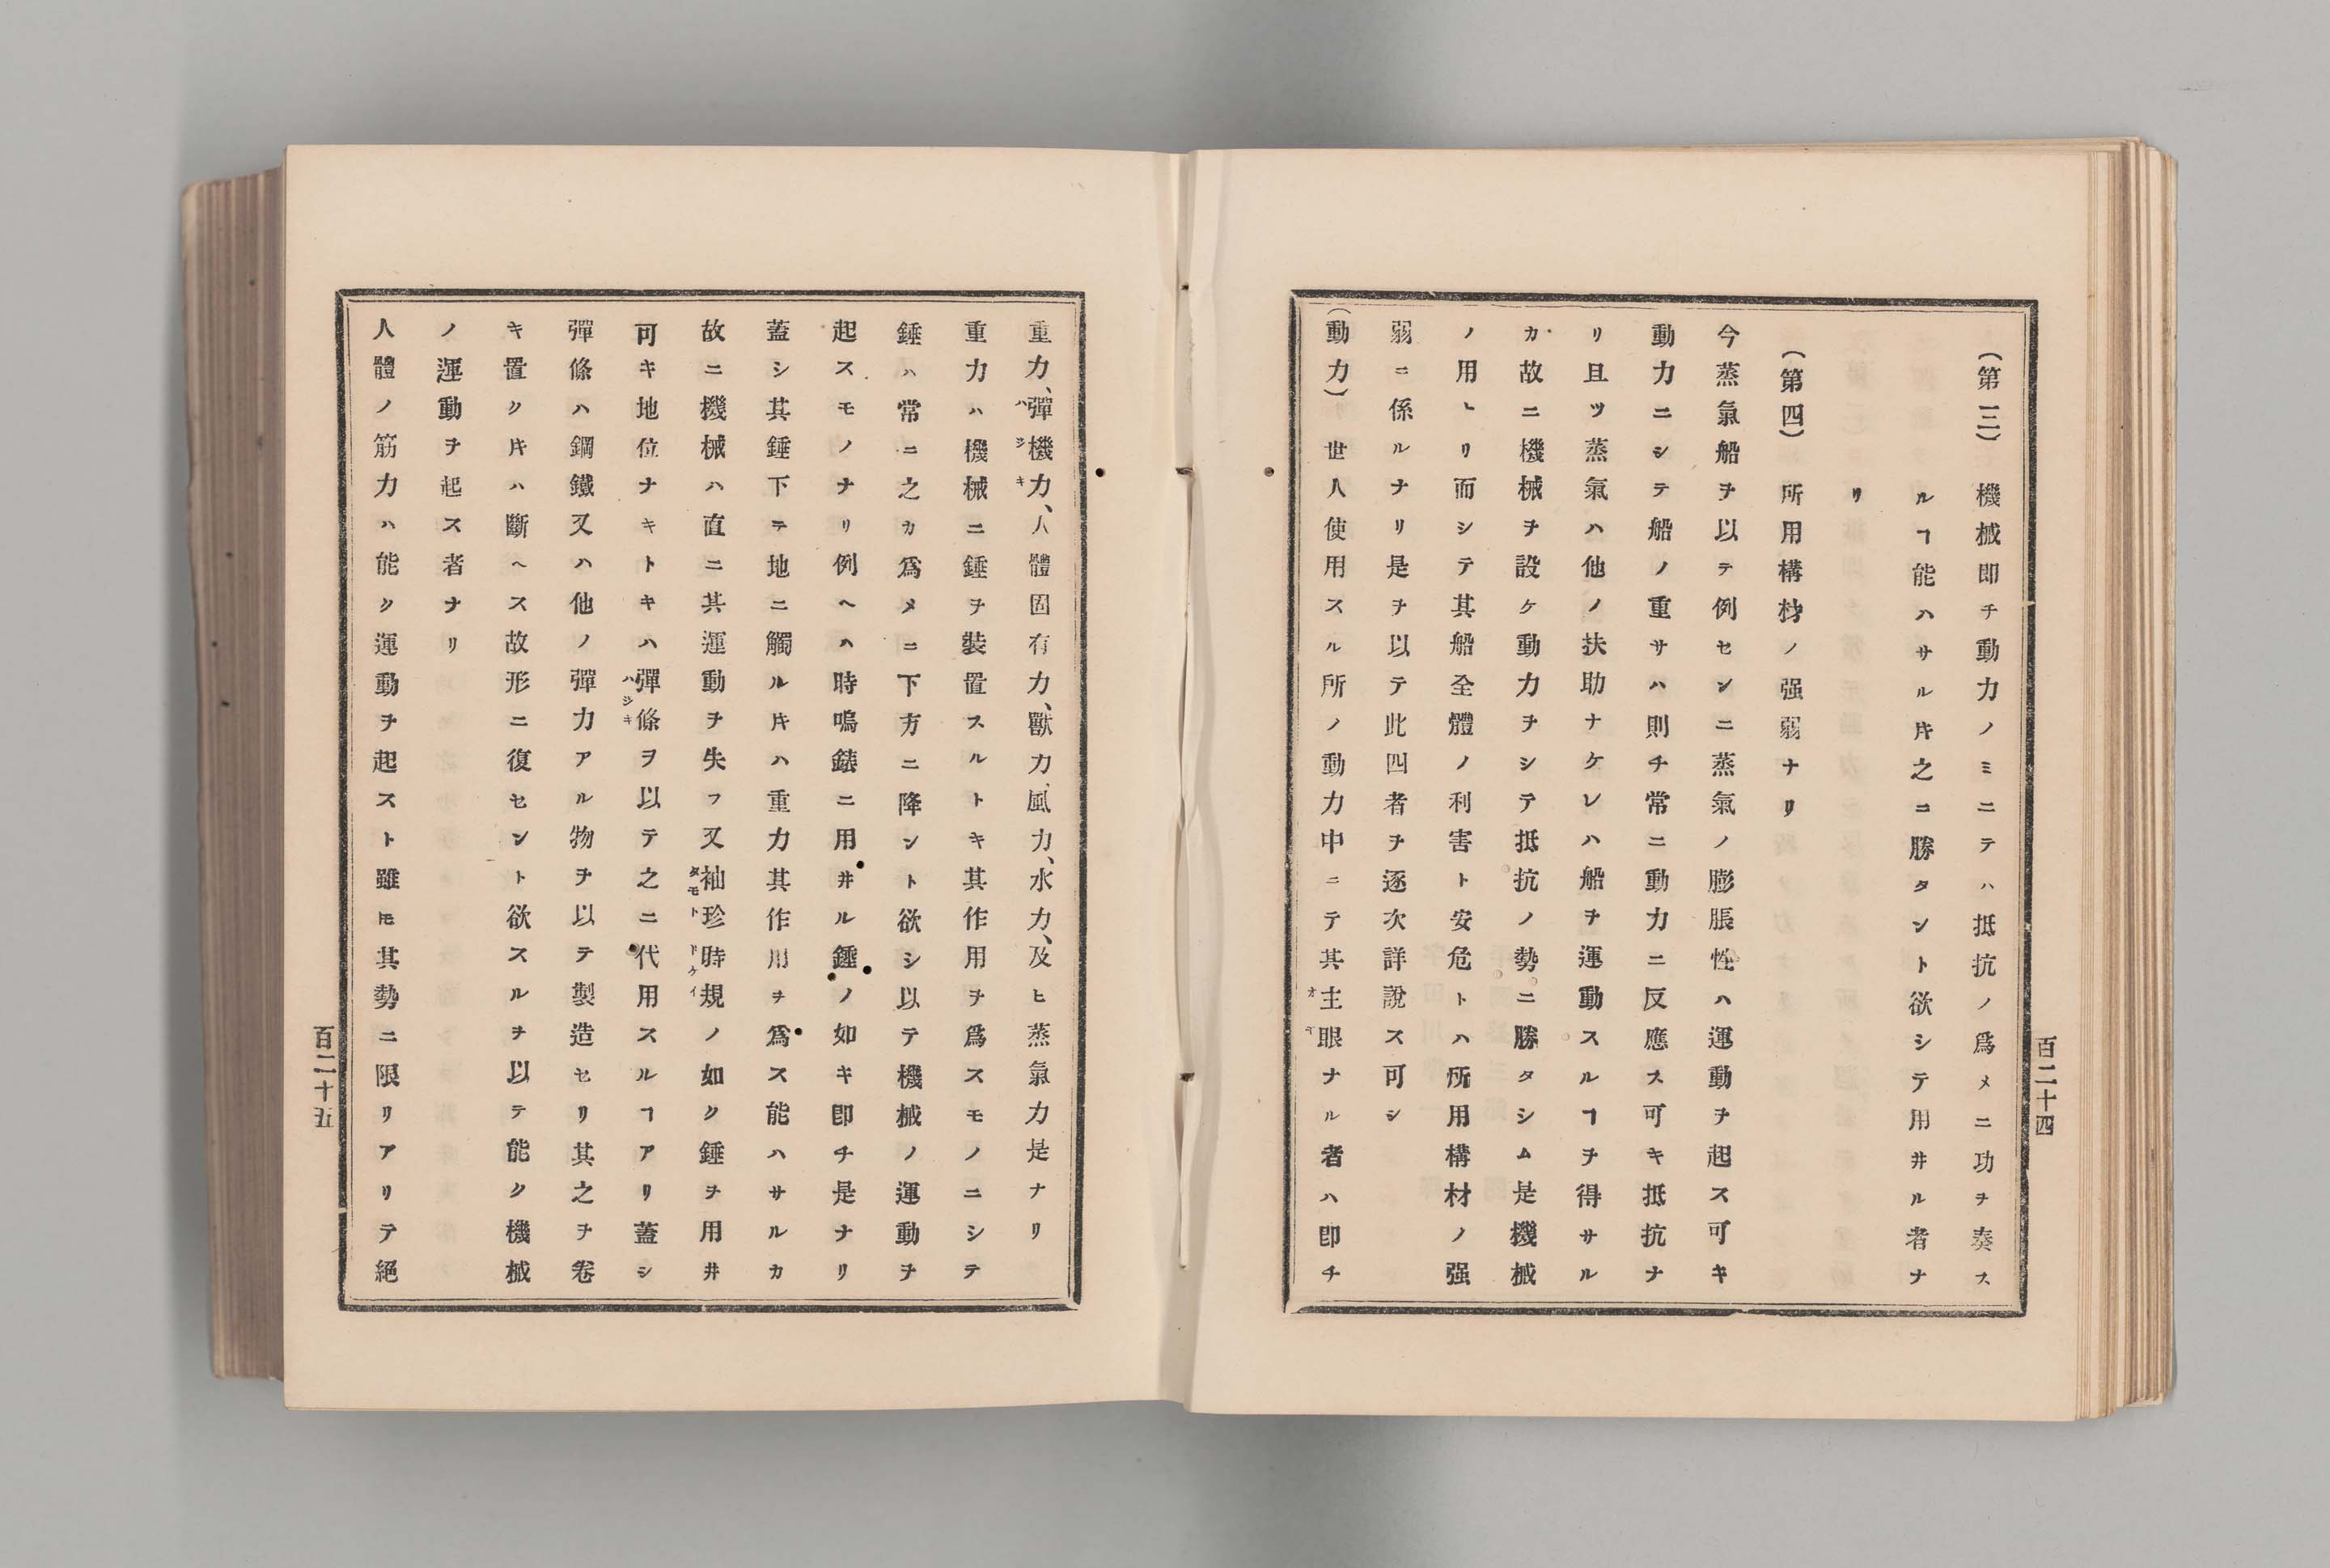 (第三)機械即チ動力ノミニテハ抵抗ノ爲メニ功ヲ奏ス
ルヿ能ハサル片之ニ勝タント欲シテ用井ル者ナ
リ
(第四)所用構材ノ强弱ナリ
今蒸氣船ヲ以テ例センニ蒸氣ノ膨脹性ハ運動ヲ起ス可キ
動力ニシテ船ノ重サハ則チ常ニ動力ニ反應ス可キ抵抗ナ
リ且ツ蒸氣ハ他ノ扶助ナケレハ船ヲ運動スルヿヲ得サル
カ故ニ機械ヲ設ケ動力ヲシテ抵抗ノ勢ニ勝タシム是機械
ノ用ヒリ而シテ其船全體ノ利害ト安危トハ所用構材ノ强
弱ニ係ルナリ是ヲ以テ此四者ヲ逐次詳說ス可シ
(動力)世人使用スル所ノ動力中ニテ其主眼ナル者ハ卽チ
百二十四
重力、彈機力、人體固有力、獸力、風力、水力、及ヒ蒸氣力是ナリ
ハジキ
重力ハ機械ニ錘ヲ裝置スルトキ其作用ヲ爲スモノニシテ
錘ハ常ニ之カ爲メニ下方ニ降ント欲シ以テ機械ノ運動ヲ
起スモノナリ例ヘハ時鳴錶ニ用井ル錘ノ如キ卽チ是ナリ
蓋シ其錘下テ地ニ觸ル片ハ重力其作用ヲ爲ス能ハサルカ
故ニ機械ハ直ニ其運動ヲ失フ又袖珍時規ノ如ク錘ヲ用井
タモトドケイ
可キ地位ナキトキハ彈條ヲ以テ之ニ代用スルヿアリ蓋シ
ハジキ
彈條ハ鋼鐵又ハ他ノ彈力アル物ヲ以テ製造セリ其之ヲ卷
キ置ク片ハ斷ヘス故形ニ復セント欲スルヲ以テ能ク機械
ノ運動ヲ起ス者ナリ
人體ノ筋力ハ能ク運動ヲ起スト雖𪜈其勢ニ限リアリテ絕
百二十五